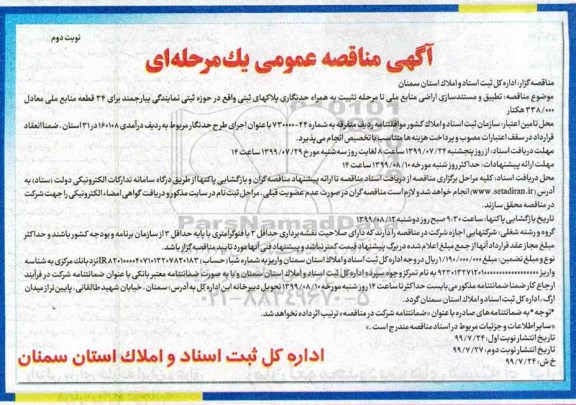 نوبت دوم
آگهی مناقصه عمومی یك مرحله‌ای
مناقصه گزار: اداره کل ثبت اسناد و املاک استان سمنان
موضوع مناقصه: تطبیق و مستندسازی اراضی منابع ملی تا مرحله تثبیت به همراه حدنگاری پلاکهای ثبتی واقع در حوزه ثبتی نمایندگی بیارجمند برای ۳۴ قطعه منابع ملی معادل
۳۳۸/۰۰۰ هکتار
محل تامین اعتبار: سازمان ثبت اسناد و املاک کشور موافقتنامه ردیف متفرقه به شماره ۴۴-۷۳۰۰۰۰ با عنوان اجرای طرح حدنگار مربوط به ردیف درآمدی ۱۶۰۱۰۸ در ۳۱ استان. ضمنا انعقاد
قرارداد در سقف اعتبارات مصوب و پرداخت هزینه ها متناسب با تخصیص انجام می پذیرد.
مهلت دریافت اسناد: از روز پنجشنبه ۱۳۹۹/۰۷/۲۴ ساعت ۸ لغایت روز سه شنبه مورخ ۱۳۹۹/۰۷/۲۹ ساعت ۱۴
مهلت ارائه پیشنهادات: حداکثر روز شنبه مورخه ۱۳۹۹/۰۸/۱۰ ساعت ۱۴
محل دریافت اسناد: کلیه مراحل برگزاری مناقصه از دریافت اسناد مناقصه تا ارائه پیشنهاد مناقصه گران و بازگشایی پاکتها از طریق درگاه سامانه تدارکات الکترونیکی دولت (ستاد) به
آدرس (www.setadiran.ir) انجام خواهد شد و لازم است مناقصه گران در صورت عدم عضویت قبلی، مراحل ثبت نام در سایت مذکور و دریافت گواهی امضاء الکترونیکی را جهت شرکت
در مناقصه محقق سازند.
تاریخ بازگشایی پاکتها: ساعت ۹:۳۰ صبح روز دوشنبه ۱۳۹۹/۰۸/۱۲
گروه و رشته شغلی: شرکتهایی اجازه شرکت در مناقصه را دارند که دارای صلاحیت نقشه برداری حداقل ۳ یا فتوگرامتری با پایه حداقل ۳ از سازمان برنامه و بودجه کشور باشند و حداکثر
مبلغ مجاز عقد قرارداد آنها از جمع مبلغ اعلام شده در برگ پیشنهاد قیمت کمتر نباشد و پیشنهاد فنی آنها مورد تایید مناقصه گزار باشد.
نوع و مبلغ تضمین: مبلغ ۱/۱۹۰/۰۰۰/۰۰۰ ریال در وجه اداره کل ثبت اسناد و املاک استان سمنان واریز به شماره شبا حساب نزد بانک مرکزی به شناسه
واریز به نام تمرکز وجوه سپرده اداره کل ثبت اسناد و املاک استان سمنان و یا به صورت ضمانتنامه معتبر بانکی با عنوان ضمانتنامه شرکت در فرآیند
ارجاع کار ضمنا ضمانتنامه مذکور می بایست حداکثر تا ساعت ۱۴ روز شنبه مورخه ۱۳۹۹/۰۸/۱۰ تحویل دبیرخانه این اداره کل به آدرس: سمنان، خیابان شهید طالقانی، پایین تر از میدان
ارگ، اداره کل ثبت اسناد و املاک استان سمنان گردد.
*توجه* به ضمانتنامه های صادره با عنوان «ضمانتنامه شرکت در مناقصه» ترتیب اثر داده نخواهد شد.
«سایر اطلاعات و جزئیات مربوط در اسناد مناقصه مندرج است.»
تاریخ انتشار نوبت اول: ۹۹/۷/۲۴
تاریخ انتشار نوبت دوم: ۹۹/۷/۲۷
خ ش: ۹۹/۷/۲۴
اداره کل ثبت اسناد و املاک استان سمنان